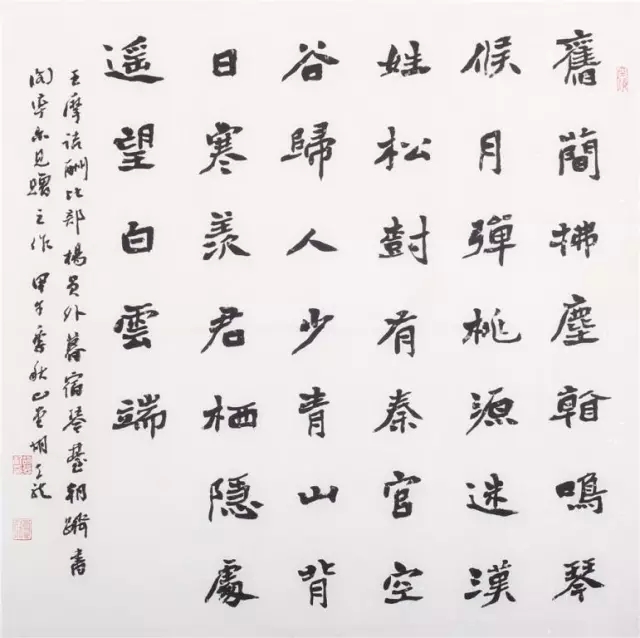 舊簡拂塵看鳴琴
候月彈桃源迷漢
姓松樹有秦官空
谷歸人少青山背
日寒羨君栖隱處
遥望白雲端
王摩詰酬比部楊員外暮宿琴臺朝躋書
閣率尔見贈之作 甲午季秋